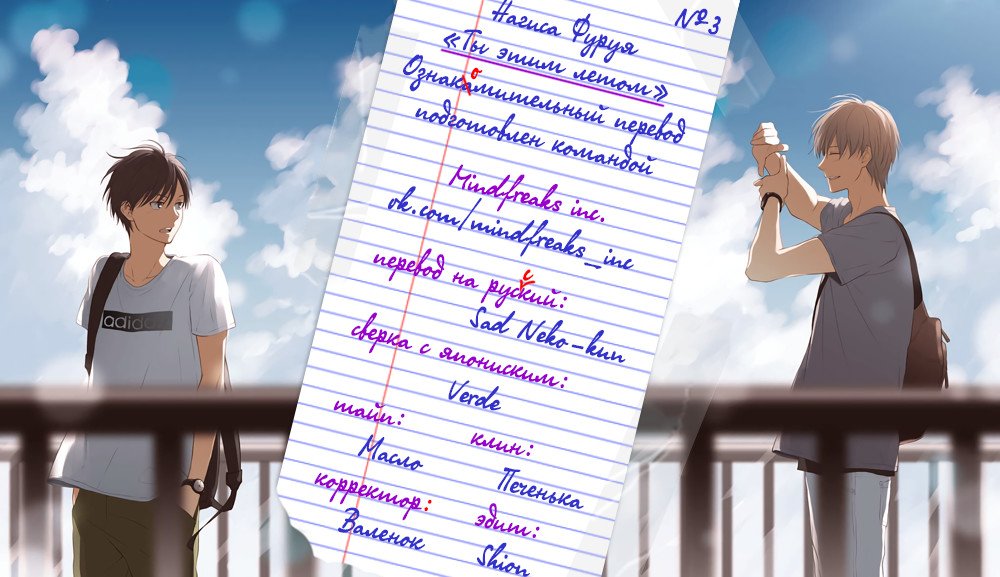 №3
Нагиса Фуруя
«Ты этим летом»
о
Ознакамительный перевод
подготовлен командой
Mindfreaks inc.
vk.com/mindfreaks_inc
с
перевод на руский:
Sad Neko-kun
сверка с япониским:
Verde
тайп:
клин:
Масло
Печенька
корректор:
эдит:
Валенок
Shion
adidas